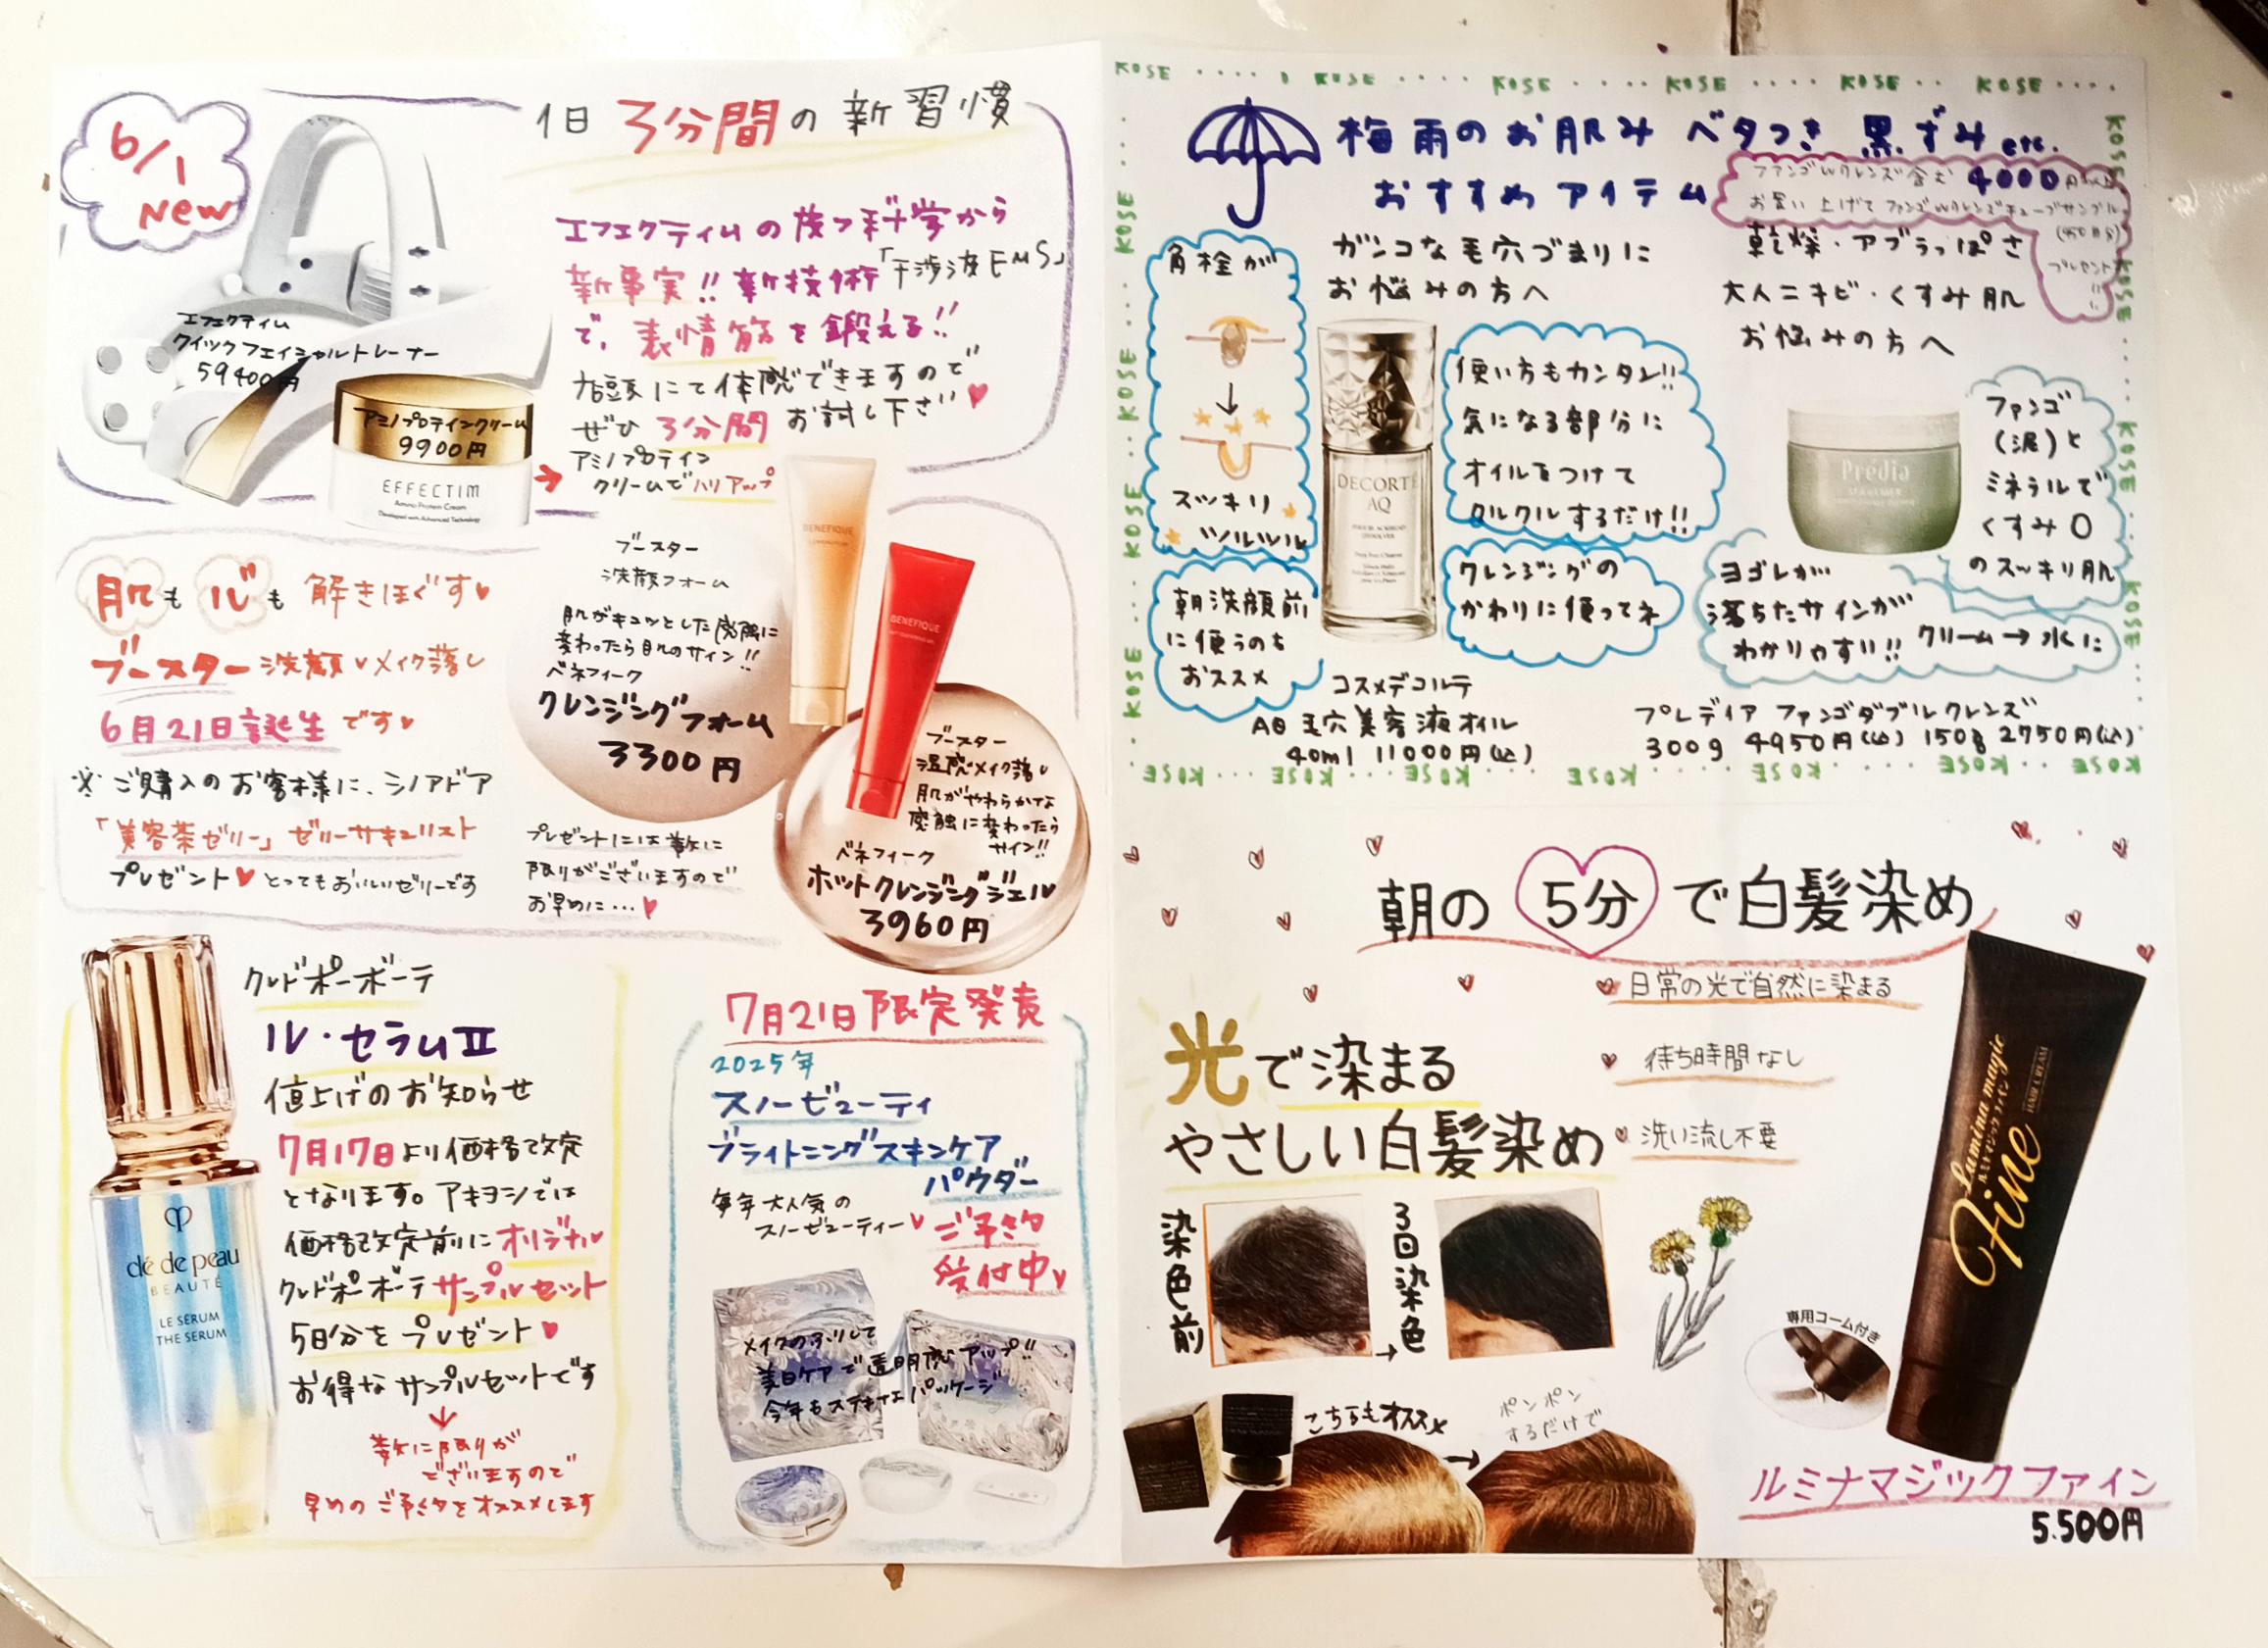 6/1
New
1日 3分間の新習慣
エフェクティムの旗つ科学から
新事実!! 新技術「干渉波EMS」
で、表情筋を鍛える!!
店頭にて体感できますので
ぜひ 3分間 お試し下さい
アミノプロテイン
クリームでハリアップ
エフェクティム
クイックフェイシャルトレーナー
59400円
アミノプロテインクリーム
9900円
EFFECTIM
Amino Protein Cream
Developed with Advanced Technology
肌も心も解きほぐす
ブースター洗顔メイク落し
6月21日誕生です
※ご購入のお客様に、シノアドア
「美容茶ゼリー」ゼリーサキュリスト
プレゼント とってもおいしいゼリーです
ブースター
洗顔フォーム
肌がキュッとした感触に
変わったら目のサイン!!
ベネフィーク
クレンジングフォーム
3300円
BENEFIQUE
BENEFIQUE
ブースター
温感メイク落し
肌がやわらかな
感触に変わったら
サイン!!
ベネフィーク
ホットクレンジングジェル
3960円
プレゼントには数に
限りがございますので
お早めに…
クレドポーボーテ
ル・セラムⅡ
値上げのお知らせ
7月17日より価格改定
となります。アキヨシでは
価格改定前にオリジナル
クレドポーボーテサンプルセット
5日分をプレゼント
お得なサンプルセットです
数に限りが
ございますので
早めのご予約をオススメします
clé de peau
BEAUTÉ
LE SÉRUM
THE SERUM
7月21日限定発売
2025年
スノービューティ
ブライトニングスキンケア
パウダー
毎年大人気の
スノービューティー
ご予約
受付中
メイクの上にして
美白ケアで透明感アップ!!
今年もステキなパッケージ
KOSE ‥‥ KOSE ‥‥ KOSE ‥‥ KOSE ‥‥ KOSE ‥ KOSE ‥‥
梅雨のお肌み ベタつき 黒ずみ etc.
おすすめアイテム
ファンゴWクレンズ含む 4000円以上
お買い上げで ファンゴWクレンズチューブサンプル
プレゼント!!
角栓が
スッキリ
ツルツル
ガンコな毛穴づまりに
お悩みの方へ
使い方もカンタン!!
気になる部分に
オイルをつけて
クルクルするだけ!!
クレンジングの
かわりに使ってネ
朝洗顔前
に使うのも
おススメ
DECORTÉ
AQ
コスメデコルテ
AQ 毛穴美容液オイル
40ml 11000円(込)
乾燥・アブラっぽさ
大人ニキビ・くすみ肌
お悩みの方へ
Prédia
ファンゴ
(泥)と
ミネラルで
くすみ0
のスッキリ肌
ヨゴレが
落ちたサインが
わかりやすい!! クリーム→水に
プレディア ファンゴダブルクレンズ
300g 4950円(込) 150g 2750円(込)
KOSE ‥‥ KOSE ‥‥ KOSE ‥‥ KOSE ‥‥ KOSE ‥‥ KOSE ‥ KOSE
朝の 5分 で白髪染め
日常の光で自然に染まる
光で染まる
待ち時間なし
やさしい白髪染め
洗い流し不要
染色前
→
3回染色
専用コーム付き
Lumina magic
ルミナマジックファイン
HAIR CREAM
Fine
こちらもオススメ
→
ポンポン
するだけで
ルミナマジックファイン
5.500円